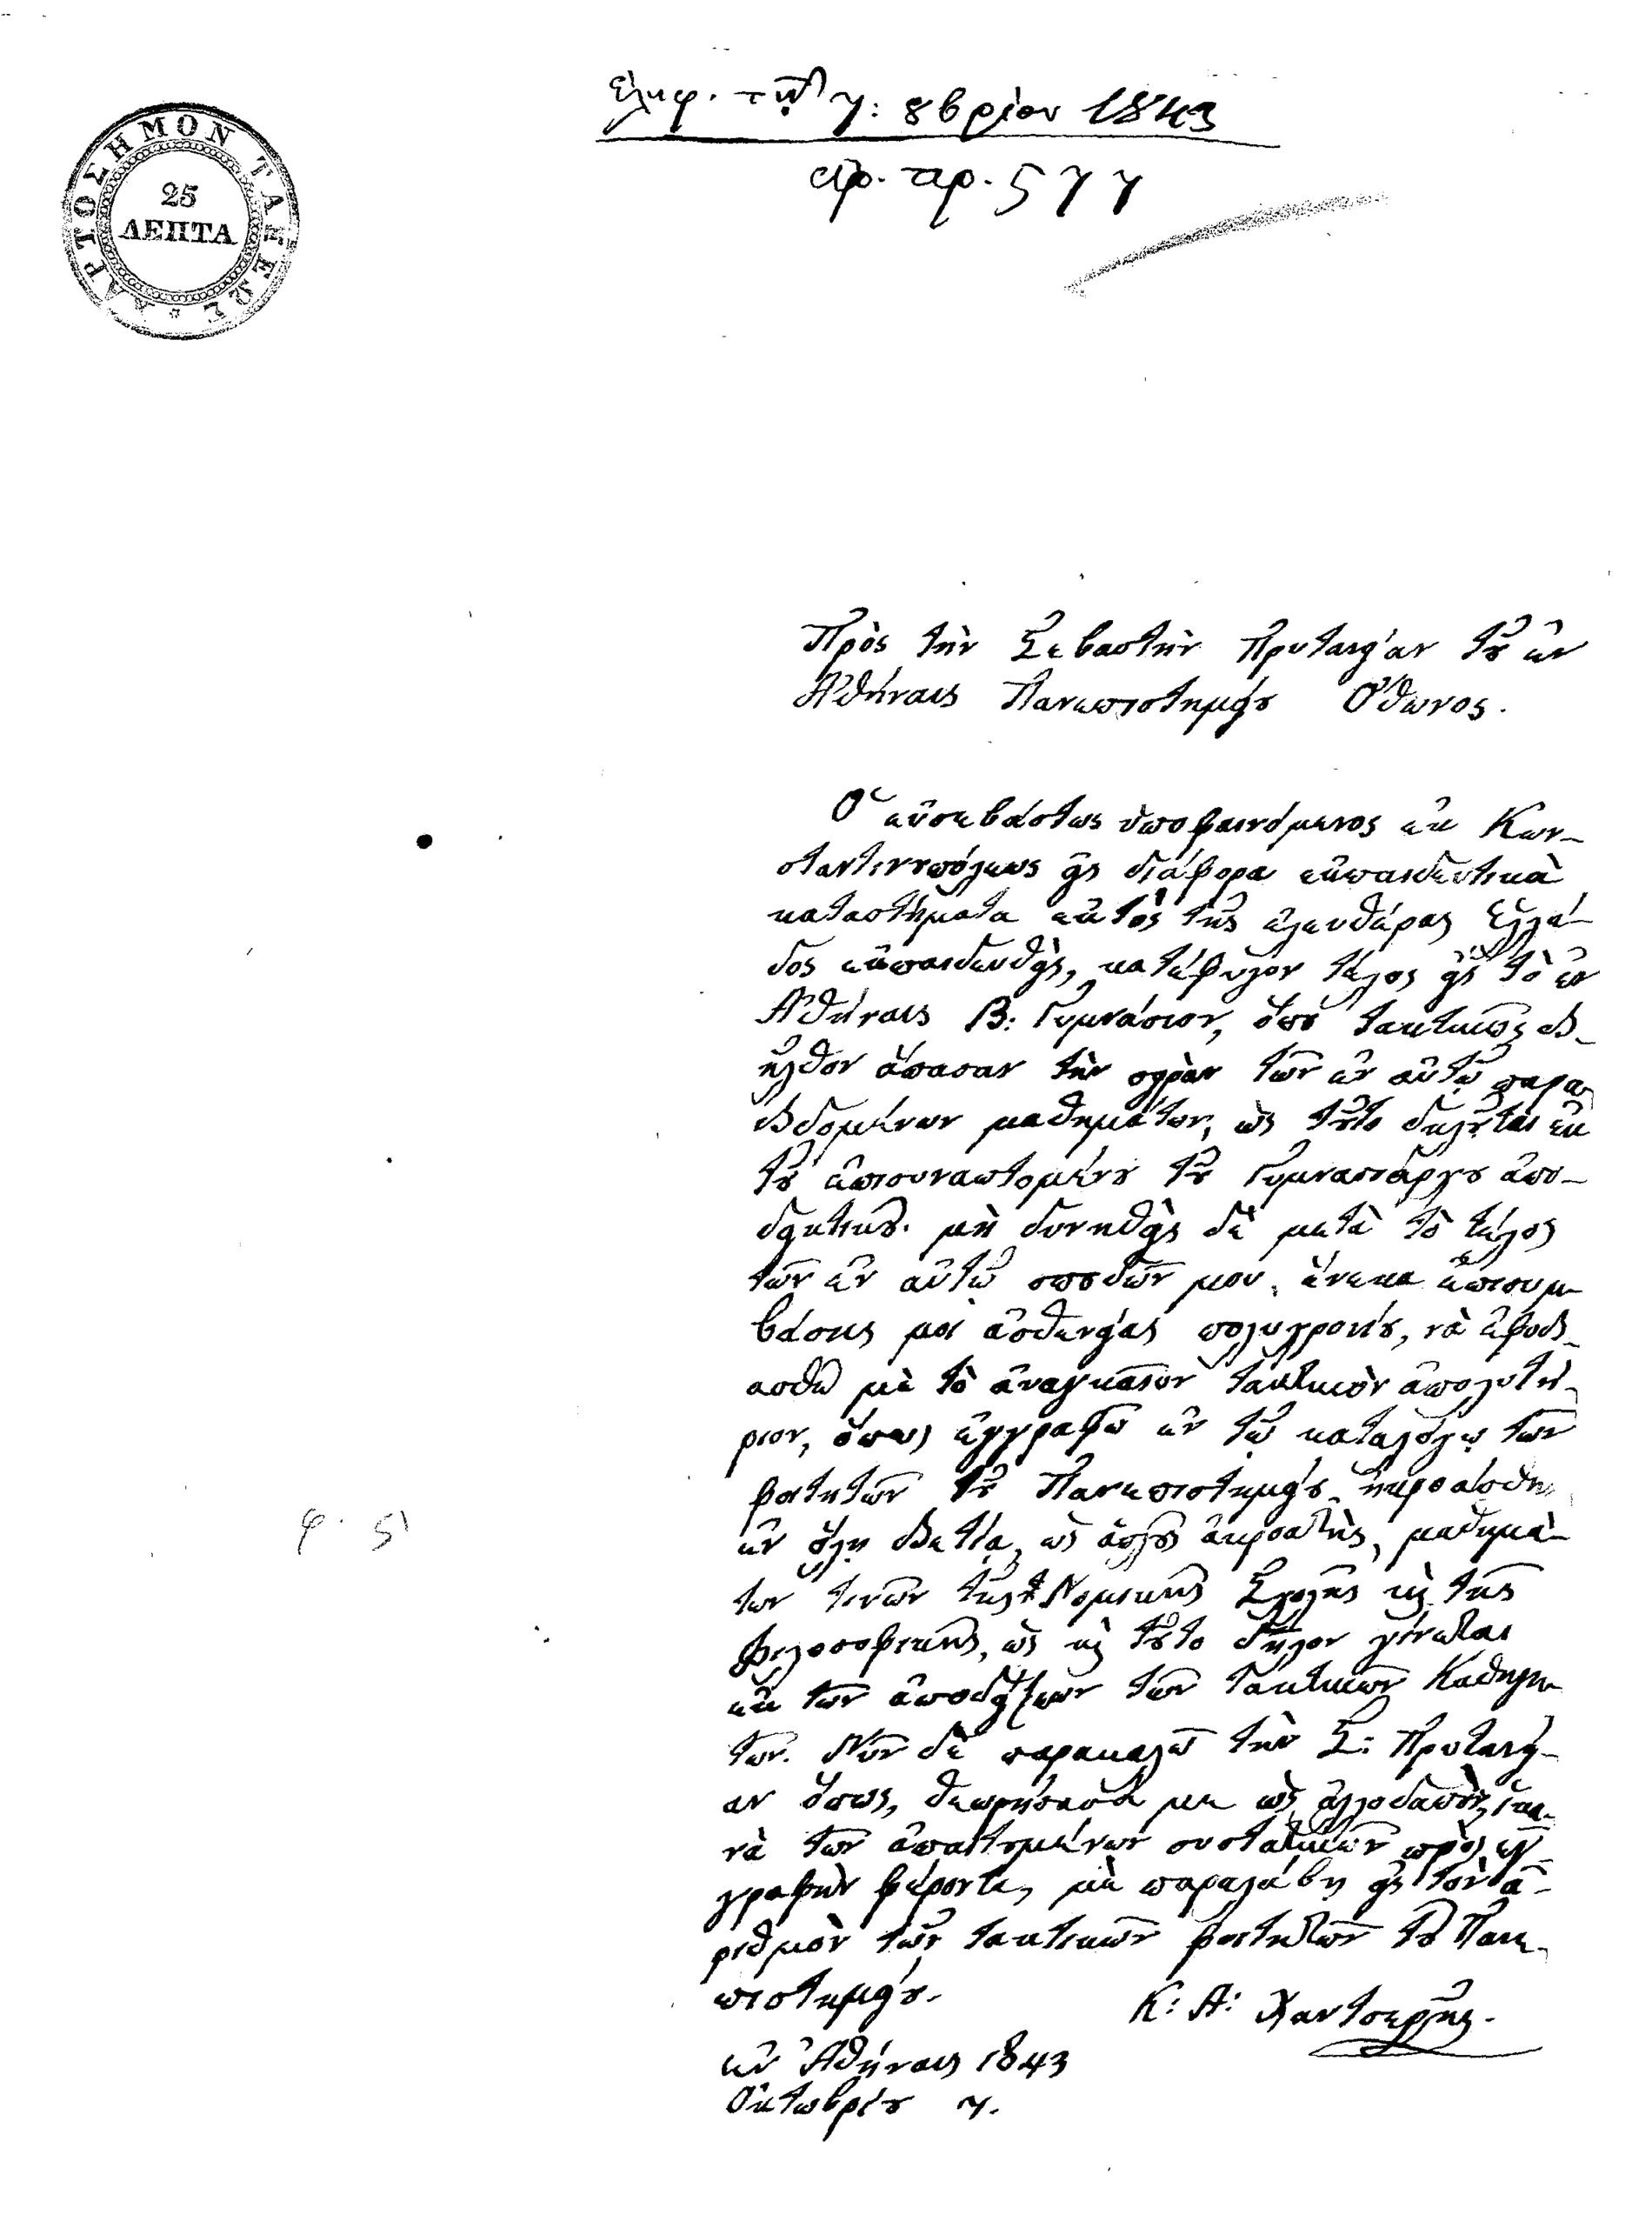 ΧΑΡΤΟΣΗΜΟΝ ΤΑΞΕΩΣ
25
ΛΕΠΤΑ
Ἐλήφ. τῇ 7: 8βρίου 1843
ἀρ. πρ. 577
Πρὸς τὴν Σεβαστὴν Πρυτανείαν τοῦ ἐν
Ἀθήναις Πανεπιστημείου Ὄθωνος.
Ὁ εὐσεβάστως ὑποφαινόμενος ἐκ Κων-
σταντινουπόλεως εἰς διάφορα ἐκπαιδευτικὰ
καταστήματα ἐντὸς τῆς ἐλευθέρας Ἑλλά-
δος ἐκπαιδευθεὶς, κατέφυγον τέλος εἰς τὸ ἐν
Ἀθήναις Β: Γυμνάσιον, ὅπου τακτικῶς δι-
ῆλθον ἅπασαν τὴν σειρὰν τῶν ἐν αὐτῷ παρα-
διδομένων μαθημάτων, ὡς τοῦτο δηλοῦται ἐκ
τοῦ ἐπισυναπτομένου τοῦ Γυμνασιάρχου ἀπο-
δεικτικοῦ. μὴ δυνηθεὶς δὲ μετὰ τὸ τέλος
τῶν ἐν αὐτῷ σπουδῶν μου, ἕνεκα ἐπισυμ-
βάσης μοι ἀσθενείας πολυχρονίου, νὰ ἐφοδι-
ασθῶ μὲ τὸ ἀναγκαῖον τακτικὸν ἀπολυτή-
ριον, ὅπως ἐγγραφῶ ἐν τῷ καταλόγῳ τῶν
φοιτητῶν τοῦ Πανεπιστημείου, ἠκροάσθην
ἐν ὅλῃ διετίᾳ, ὡς ἁπλοῦς ἀκροατὴς, μαθημά-
των τινῶν τῆς Νομικῆς Σχολῆς καὶ τῆς
Φιλοσοφικῆς, ὡς καὶ τοῦτο δῆλον γίνεται
ἐκ τῶν ἀποδείξεων τῶν τακτικῶν Καθηγη-
τῶν. Νῦν δὲ παρακαλῶ τὴν Σ: Πρυτανεί-
αν ὅπως, θεωρήσασά με ὡς ἀλλοδαπὸν, ἱκα-
νὰ τῶν ἀπαιτουμένων συστατικῶν πρὸς ἐγ-
γραφὴν φέροντα, μὲ παραλάβῃ εἰς τὸν ἀ-
ριθμὸν τῶν τακτικῶν φοιτητῶν τοῦ Πανε-
πιστημείου.
Κ: Α: Χαντσερῆς.
ἐν Ἀθήναις 1843
Ὀκτωβρίου 7.